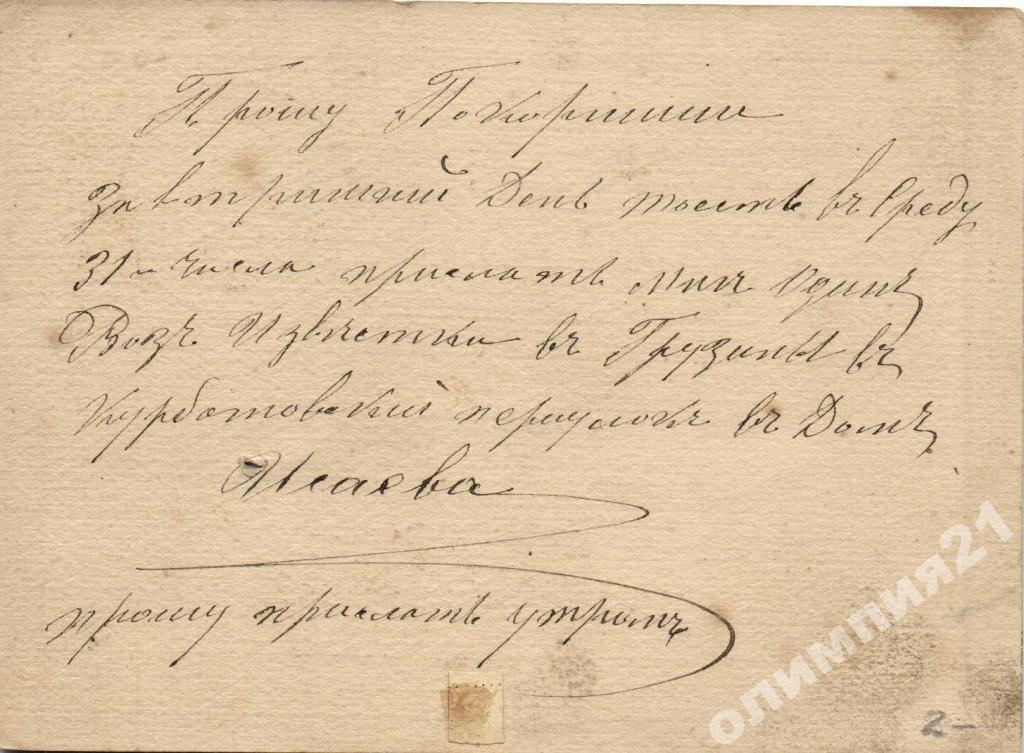 Прошу Покорнише
завтришний День тоесть въ Среду
31-го числа прислать мнѣ Одинъ
Возъ Извѣстки въ Грузины въ
Курбатовский переулокъ въ Домъ
Исаева
прошу прислать утромъ
олимпия21
2-